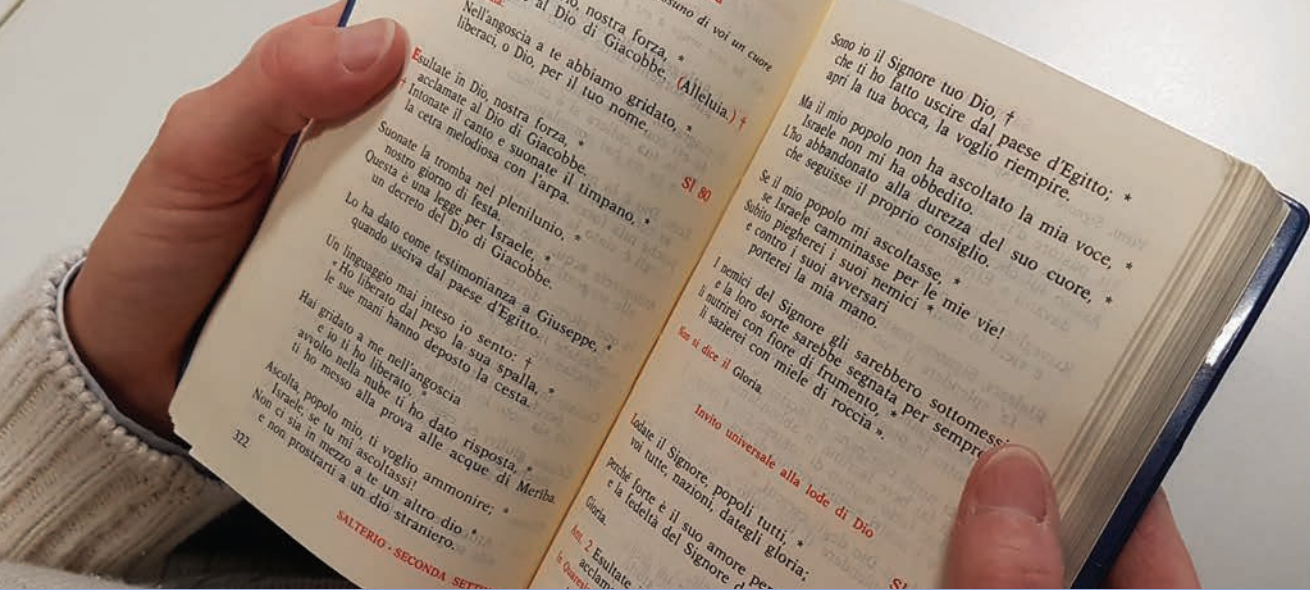 suno di voi un cuore
io, nostra forza, *
e al Dio di Giacobbe.
Nell'angoscia a te abbiamo gridato, *
liberaci, o Dio, per il tuo nome. (Alleluia.) †
Sl 80
Esultate in Dio, nostra forza, *
acclamate al Dio di Giacobbe.
† Intonate il canto e suonate il timpano, *
la cetra melodiosa con l'arpa.
Suonate la tromba nel plenilunio, *
nostro giorno di festa.
Questa è una legge per Israele, *
un decreto del Dio di Giacobbe.
Lo ha dato come testimonianza a Giuseppe, *
quando usciva dal paese d'Egitto.
Un linguaggio mai inteso io sento: †
« Ho liberato dal peso la sua spalla, *
le sue mani hanno deposto la cesta.
Hai gridato a me nell'angoscia
e io ti ho liberato, *
avvolto nella nube ti ho dato risposta, *
ti ho messo alla prova alle acque di Meriba.
Ascolta, popolo mio, ti voglio ammonire; *
Israele, se tu mi ascoltassi!
Non ci sia in mezzo a te un altro dio *
e non prostrarti a un dio straniero.
322
SALTERIO - SECONDA SETTI
Sono io il Signore tuo Dio, †
che ti ho fatto uscire dal paese d'Egitto; *
apri la tua bocca, la voglio riempire.
Ma il mio popolo non ha ascoltato la mia voce, *
Israele non mi ha obbedito.
L'ho abbandonato alla durezza del suo cuore, *
che seguisse il proprio consiglio.
Se il mio popolo mi ascoltasse, *
se Israele camminasse per le mie vie!
Subito piegherei i suoi nemici *
e contro i suoi avversari
porterei la mia mano.
I nemici del Signore gli sarebbero sottomessi
e la loro sorte sarebbe segnata per sempre
li nutrirei con fiore di frumento, *
li sazierei con miele di roccia ».
Non si dice il Gloria.
Invito universale alla lode di Dio
Lodate il Signore, popoli tutti, *
voi tutte, nazioni, dategli gloria;
perché forte è il suo amore per
e la fedeltà del Signore d
Gloria.
Ant. 2 Esultate i
acclam
In Quaresi